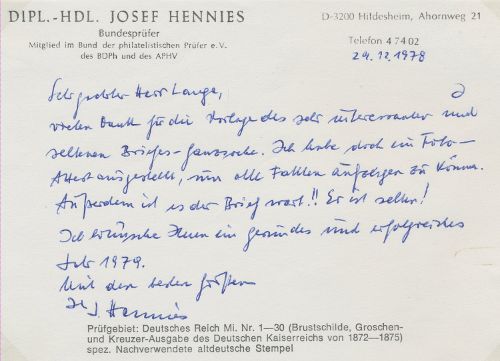 DIPL.-HDL. JOSEF HENNIES
Bundesprüfer
Mitglied im Bund der philatelistischen Prüfer e.V.
des BDPh und des APHV
D-3200 Hildesheim, Ahornweg 21
Telefon 4 74 02
29.12.1978
Sehr geehrter Herr Lange,
vielen Dank für die Vorlage des sehr interessanten und
seltenen Briefes-Ganzsache. Ich habe doch ein Foto-
Attest ausgestellt, um alle Fakten aufzeigen zu können.
Außerdem ist es der Brief wert!! Er ist selten!
Ich wünsche Ihnen ein gesundes und erfolgreiches
Jahr 1979.
Mit den besten Grüßen
Ihr J. Hennies
Prüfgebiet: Deutsches Reich Mi. Nr. 1—30 (Brustschilde, Groschen-
und Kreuzer-Ausgabe des Deutschen Kaiserreichs von 1872—1875)
spez. Nachverwendete altdeutsche Stempel